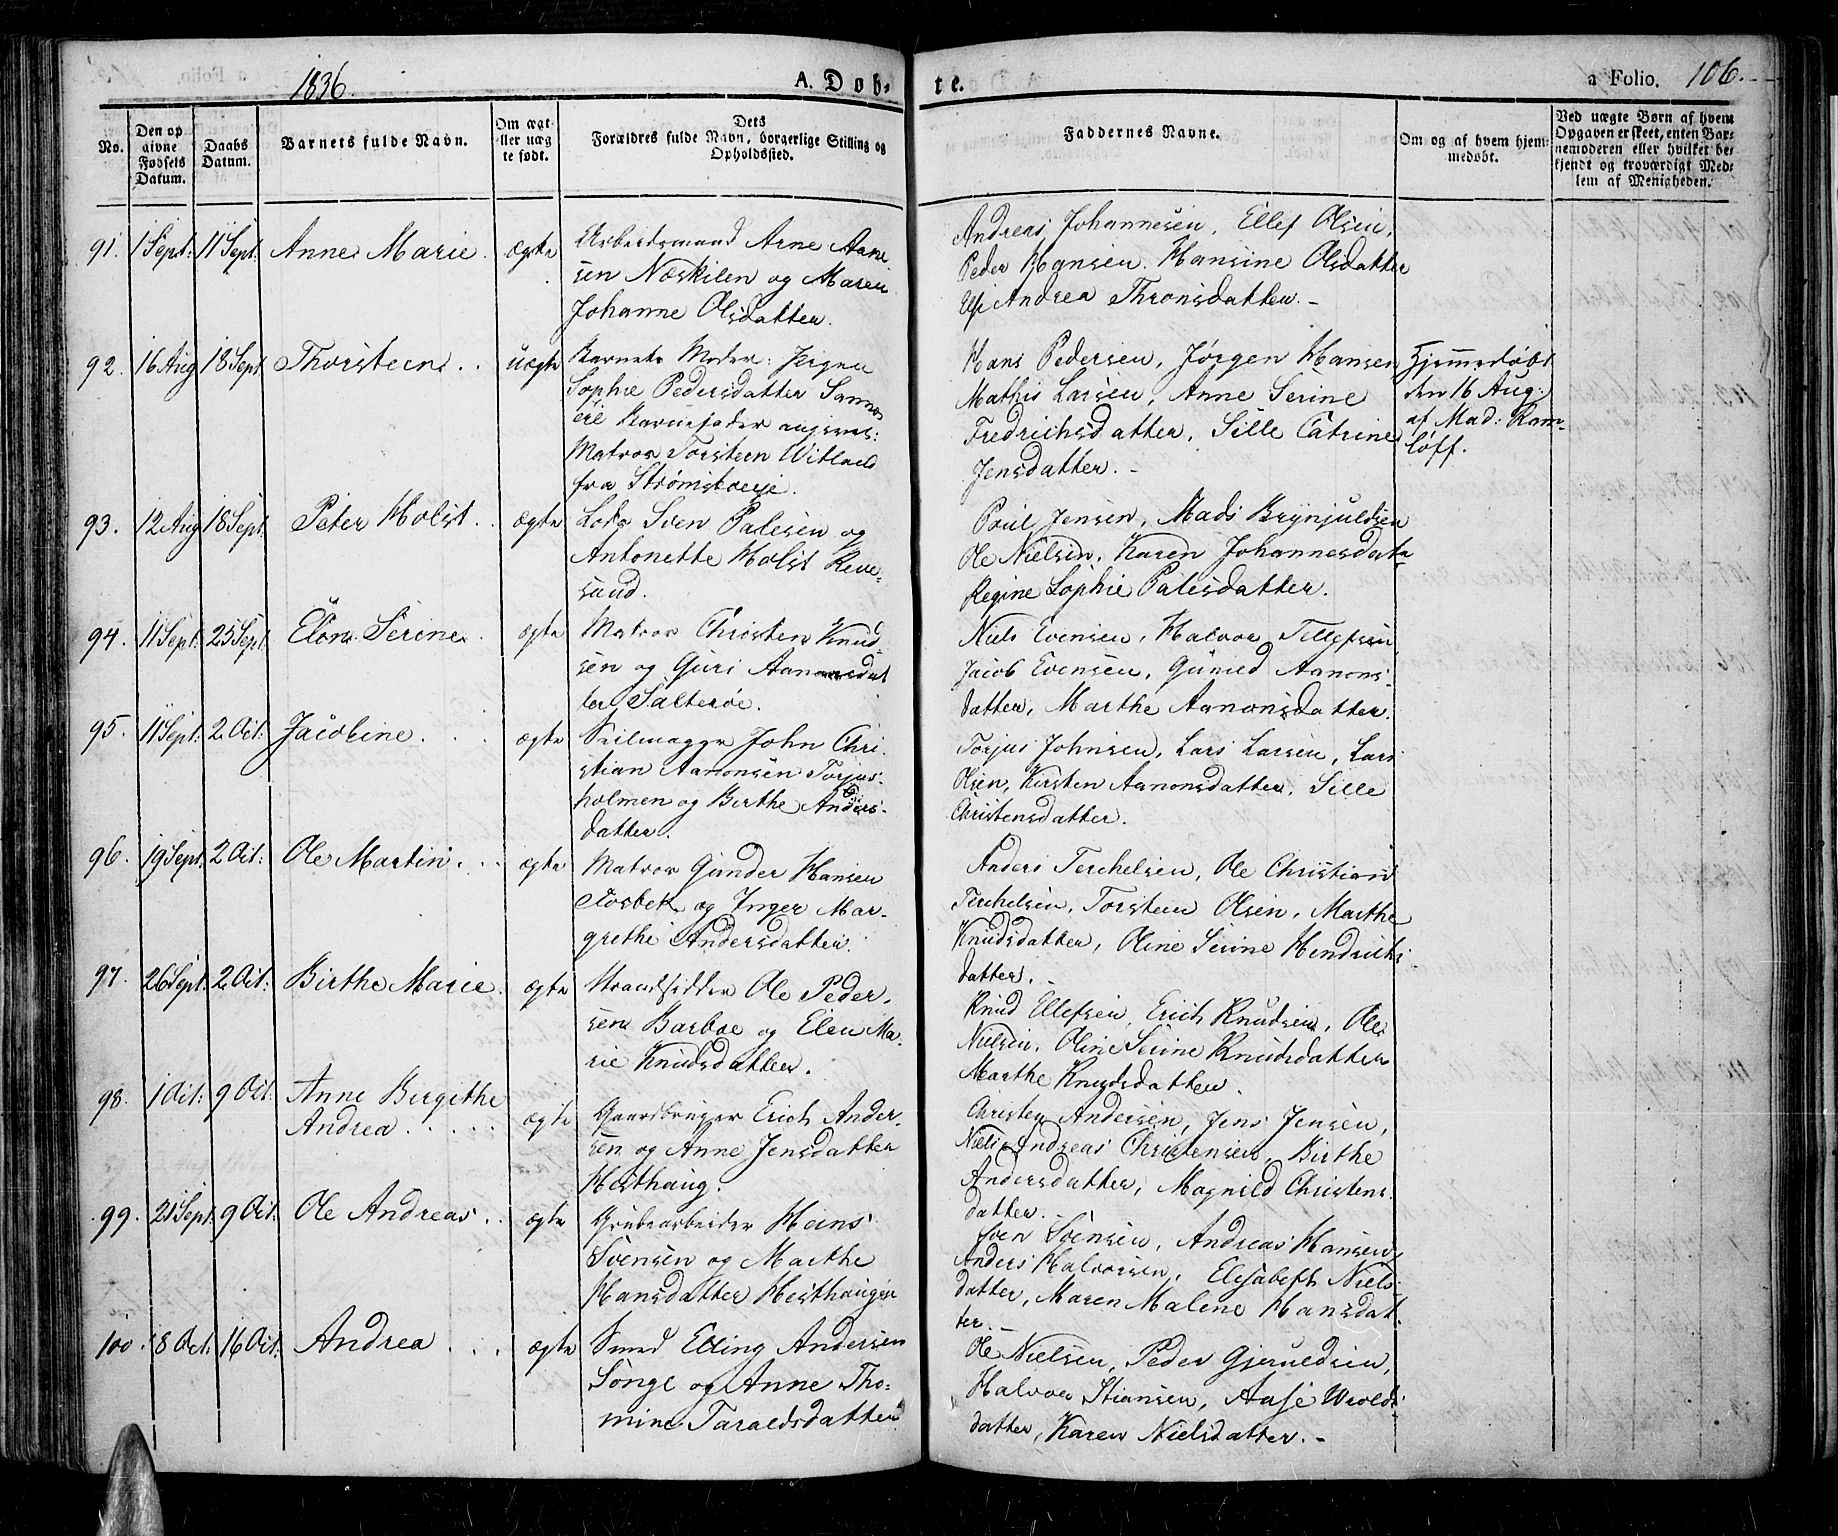 1836.
A. Døb-
te.
a Folio. 106.
No.
Den op
givne
Fødsels
Datum.
Daabs
Datum.
Barnets fulde Navn.
Om ægt
eller uæg
te født.
Dets
Forældres fulde Navn, borgerlige Stilling og
Opholdssted.
Faddernes Navne.
Om og af hvem hjem-
medøbt.
Ved uægte Børn af hvem
Opgaven er skeet, enten Bar-
nemoderen eller hvilket be-
kjendt og troværdigt Med-
lem af Menigheden.
91. 1 Sept: 11 Sept. Anne Marie. ægte
Arbeidsmand Arne Aane
sen Næskilen og Maren
Johanne Olsdatter.
Andreas Johannesen, Ellef Olsen,
Peder Hansen. Hansine Olsdatter
Andrea Thronsdatter.-
92. 16 Aug 18 Sept Thorsteen . . uægte
Barnets Moder: Jngen
Sophie Pedersdatter Sannøs
Barnefader angives:
Matros Torsteen Witland
fra Strømsboeje.
Hans Pedersen, Jørgen Hansen
Mathis Larsen, Anne Serine
Fredrichsdatter, Sille Catrine
Jensdatter.-
Hjemmedøbt
den 16 Aug:
af Mad: Ram-
løff.
93. 12 Aug 18 Sept. Peter Holst. . ægte
Lods Sven Palesen og
Antonette Holst Reve-
sund.
Poul Jensen, Mads Brynjuldsen
Ole Nielsen, Karen Johannesdatr
Regine Sophie Palesdatter.
94. 11 Sept. 25 Sept. Elen Serine . ægte
Matros Christen Knud
sen og Guri Aanonsdat
ter Salterøe.
Niels Evensen, Halvor Tellefsen
Jacob Evensen, Gunild Aanons-
datter, Marthe Aanonsdatter.
95. 11 Sept: 2. Oct: Jacobine . . . ægte
Seilmager John Chri-
stian Aanonsen Torjus-
holmen og Birthe Anders-
datter.
Torjus Johnsen, Lars Larsen, Lars
Olsen, Kirsten Aanonsdatter, Sille
Christensdatter.
96. 19 Sept: 2 Oct: Ole Martin. . . ægte
Matros Gunder Hansen
Flosbek og Inger Mar-
grethe Andersdatter.
Anders Terchelsen, Ole Christian
Terchelsen, Torsteen Olsen, Marthe
Knudsdatter, Oline Serine Hendrichs-
datter.-
97. 26 Sept. 2. Oct: Birthe Marie. ægte
Strandsidder Ole Peder-
sen Barboe og Elen Ma-
rie Knudsdatter.
Knud Ellefsen, Erich Knudsen, Ole
Nielsen, Oline Serine Knudsdatter
Marthe Knudsdatter.
98. 1 Oct: 9 Oct: Anne Birgithe
Andrea . . . . . ægte
Gaardbruger Erich Ander-
sen og Anne Jensdatter
Hesthaug.
Christen Andersen, Jens Jensen,
Niels Andreas Christensen, Birthe
Andersdatter, Magnild Christens-
datter.-
99. 21 Sept. 9 Oct: Ole Andreas . . ægte
Grubearbeider Hans
Svensen og Marthe
Hansdatter Hesthaugen
Sven Svensen, Andreas Hansen,
Anders Halvorsen, Elisabeth Niels-
datter, Maren Malene Hansdat-
ter.-
100. 8 Oct: 16 Oct: Andrea . . . ægte
Smed Elling Andersen
Songe og Anne Tho-
mine Taraldsdatter
Ole Nielsen, Peder Gjeruldsen,
Halvor Stiansen, Aase Wrolds-
datter, Karen Nielsdatter.-